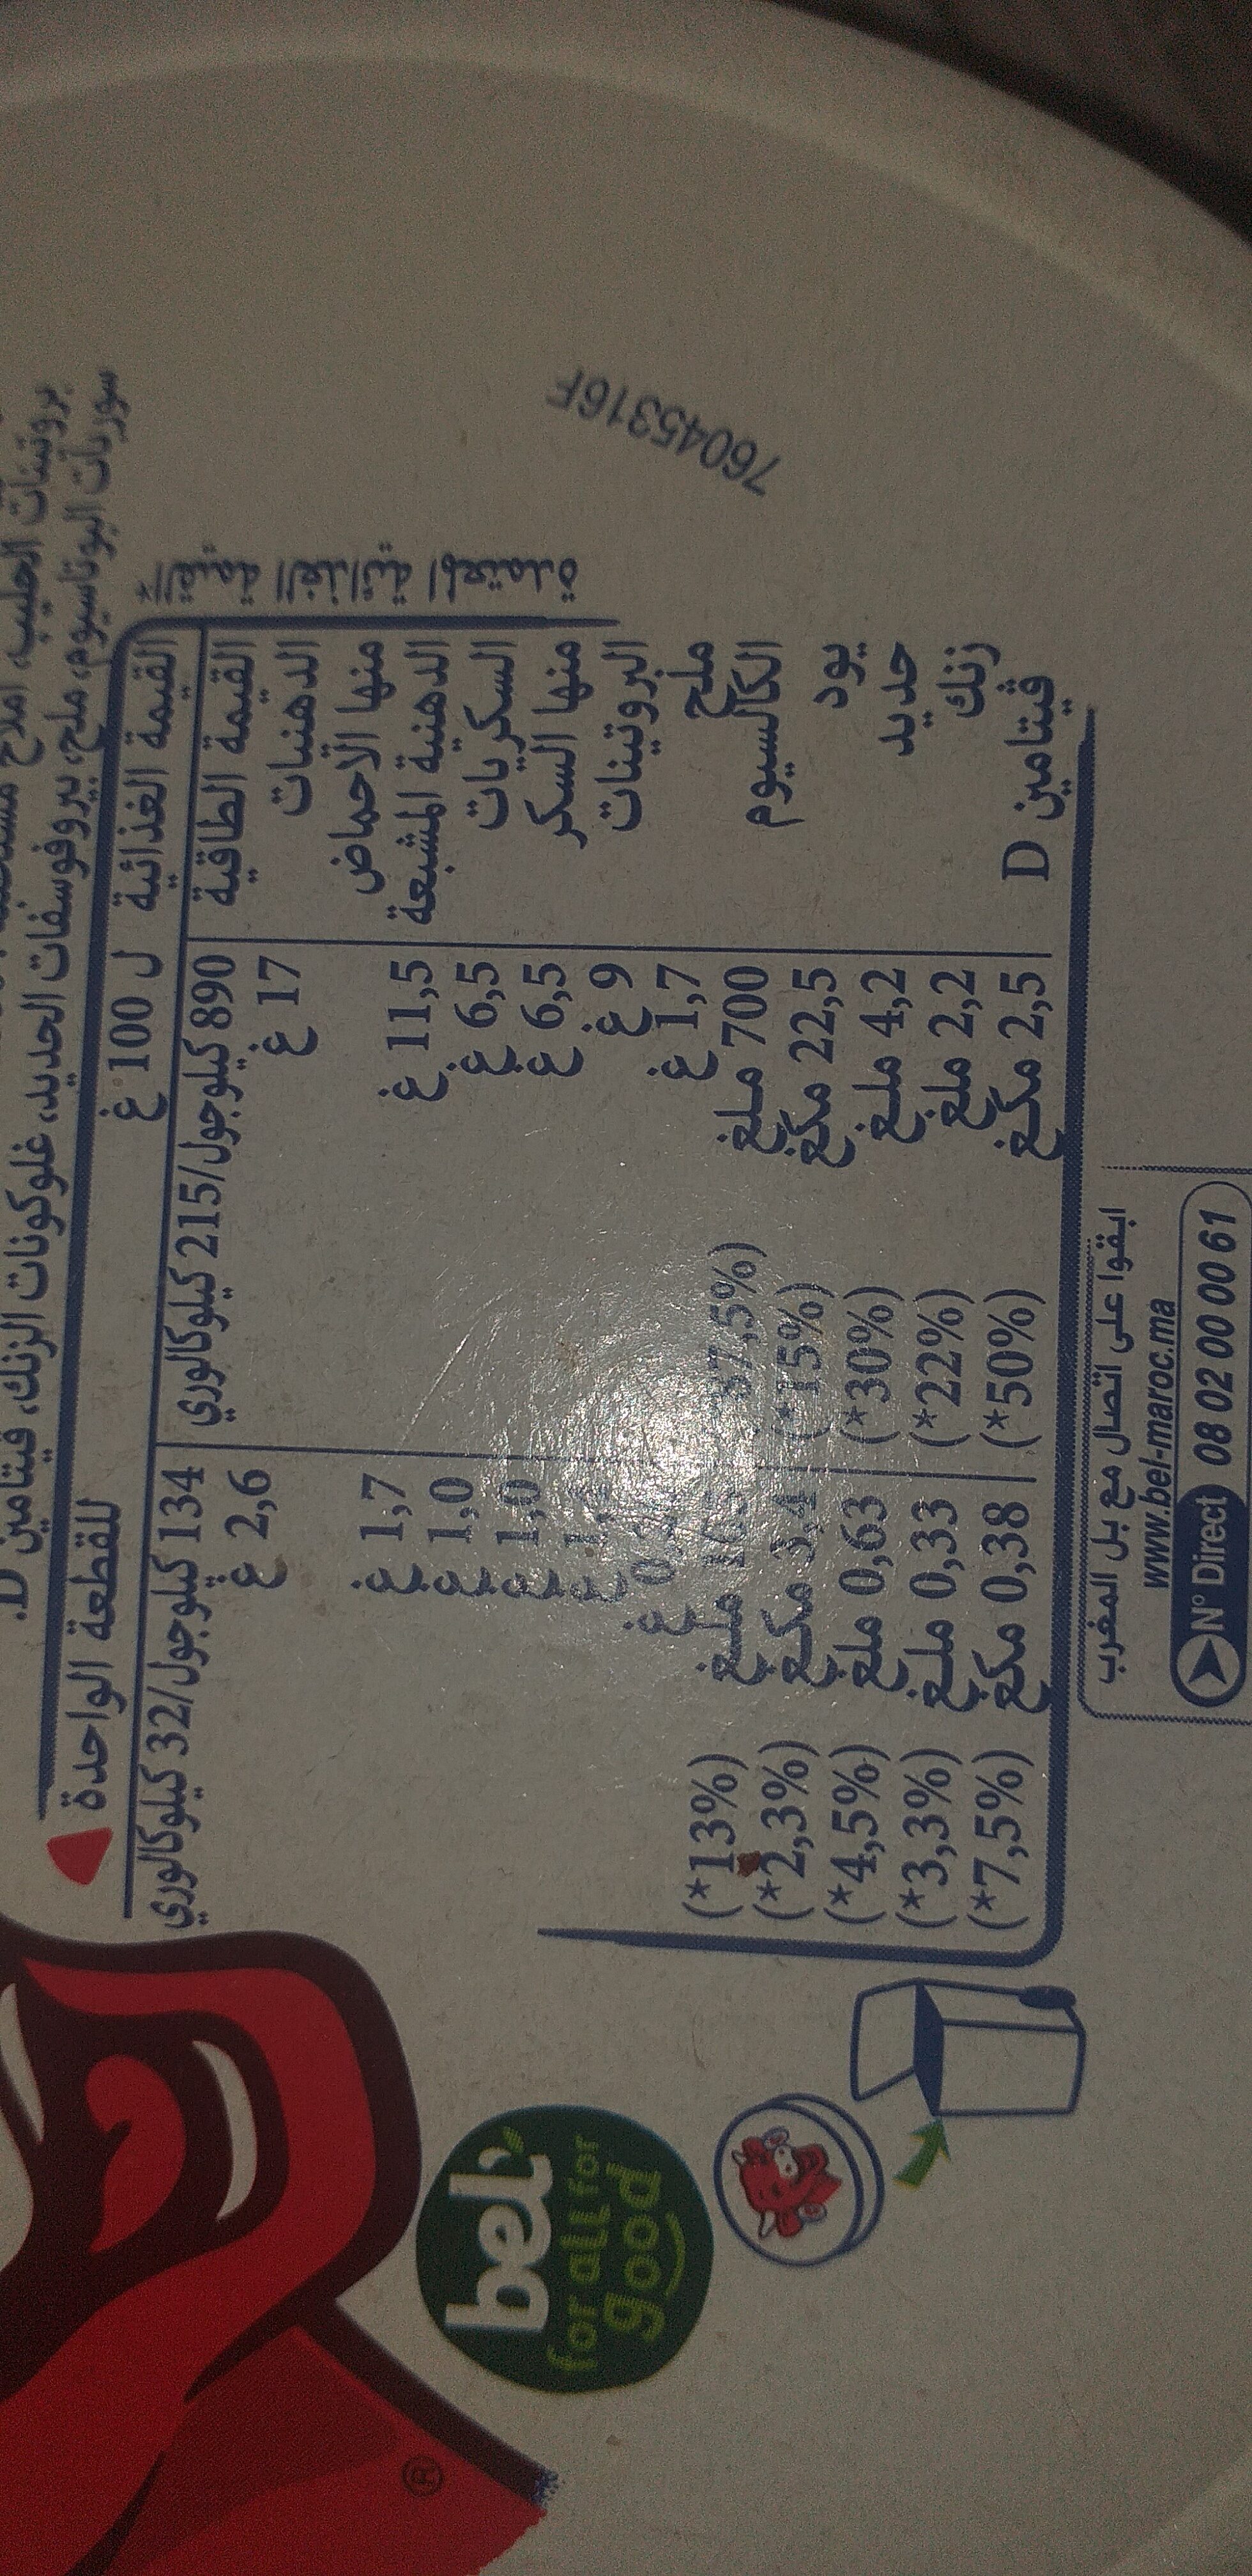 بروتينات الحليب، أملاح
سوربات البوتاسيوم، ملح، بيروفوسفات الحديد، غلوكونات الزنك، فيتامين D.
القيمة الغذائية ل 100 غ للقطعة الواحدة
القيمة الطاقية 890 كيلوجول/215 كيلوكالوري 134 كيلوجول/32 كيلوكالوري
الدهنيات 17 غ 2,6 غ
منها الأحماض
الدهنية المشبعة 11,5 غ 1,7 غ
السكريات 6,5 غ 1,0 غ
منها السكر 6,5 غ 1,0 غ
البروتينات 9 غ
ملح 1,7 غ
الكالسيوم 700 ملغ (*87,5%) ملغ (*13%)
يود 22,5 مكغ (*15%) 3,4 مكغ (*2,3%)
حديد 4,2 ملغ (*30%) 0,63 ملغ (*4,5%)
زنك 2,2 ملغ (*22%) 0,33 ملغ (*3,3%)
فيتامين D 2,5 مكغ (*50%) 0,38 مكغ (*7,5%)
*القيمة الغذائية المعتمدة
76045316F
ابقوا على اتصال مع بل المغرب
www.bel-maroc.ma
N° Direct 08 02 00 00 61
bel
for all for
good
®